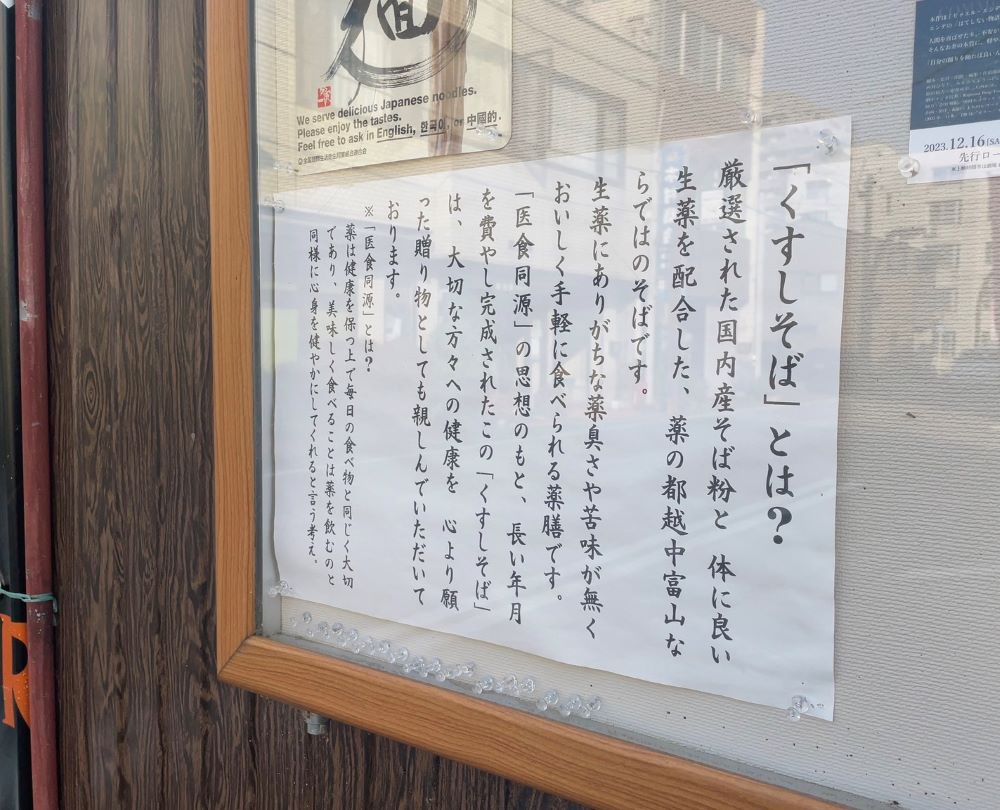 「くすしそば」とは?
厳選された国内産そば粉と 体に良い
生薬を配合した、薬の都越中富山な
らではのそばです。
生薬にありがちな薬臭さや苦味が無く
おいしく手軽に食べられる薬膳です。
「医食同源」の思想のもと、長い年月
を費やし完成されたこの「くすしそば」
は、大切な方々への健康を 心より願
った贈り物としても親しんでいただいて
おります。
※「医食同源」とは?
薬は健康を保つ上で毎日の食べ物と同じく大切
であり、美味しく食べることは薬を飲むのと
同様に心身を健やかにしてくれると言う考え。
We serve delicious Japanese noodles.
Please enjoy the tastes.
Feel free to ask in English, 한국어, or 中國的.
2023.12.16(SA
先行ロー